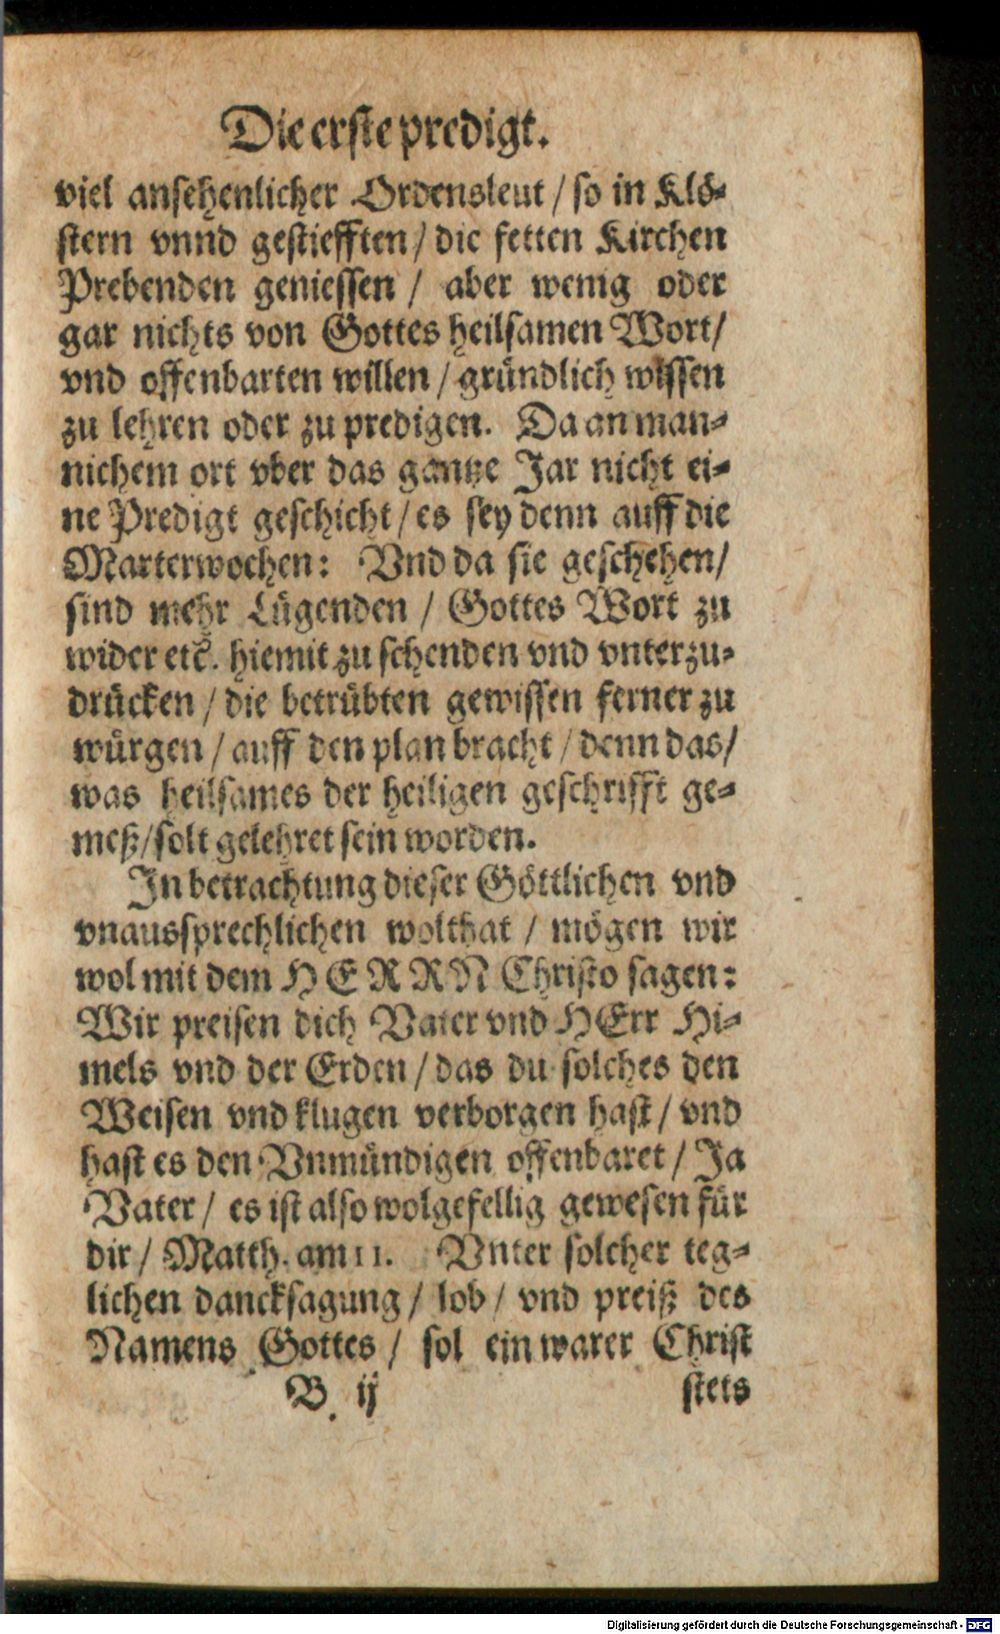 Die erste predigt.
viel ansehenlicher Ordensleut / so in Klö-
stern vnnd gestiefften / die fetten Kirchen
Prebenden geniessen / aber wenig oder
gar nichts von Gottes heilsamen Wort /
vnd offenbarten willen / gründlich wissen
zu lehren oder zu predigen. Da an man-
nichem ort vber das gantze Jar nicht ei-
ne Predigt geschicht / es sey denn auff die
Marterwochen: Vnd da sie geschehen /
sind mehr Lügenden / Gottes Wort zu
wider etc. hiemit zu schenden vnd vnterzu-
drücken / die betrübten gewissen ferner zu
würgen / auff den plan bracht / denn das /
was heilsames der heiligen geschrifft ge-
meß / solt gelehret sein worden.
In betrachtung dieser Göttlichen vnd
vnaussprechlichen wolthat / mögen wir
wol mit dem HERRN Christo sagen:
Wir preisen dich Vater vnd HErr Hi-
mels vnd der Erden / das du solches den
Weisen vnd klugen verborgen hast / vnd
hast es den Vnmündigen offenbaret / Ja
Vater / es ist also wolgefellig gewesen für
dir / Matth. am 11. Vnter solcher teg-
lichen dancksagung / lob / vnd preiß des
Namens Gottes / sol ein warer Christ
B ij stets
Digitalisierung gefördert durch die Deutsche Forschungsgemeinschaft - DFG